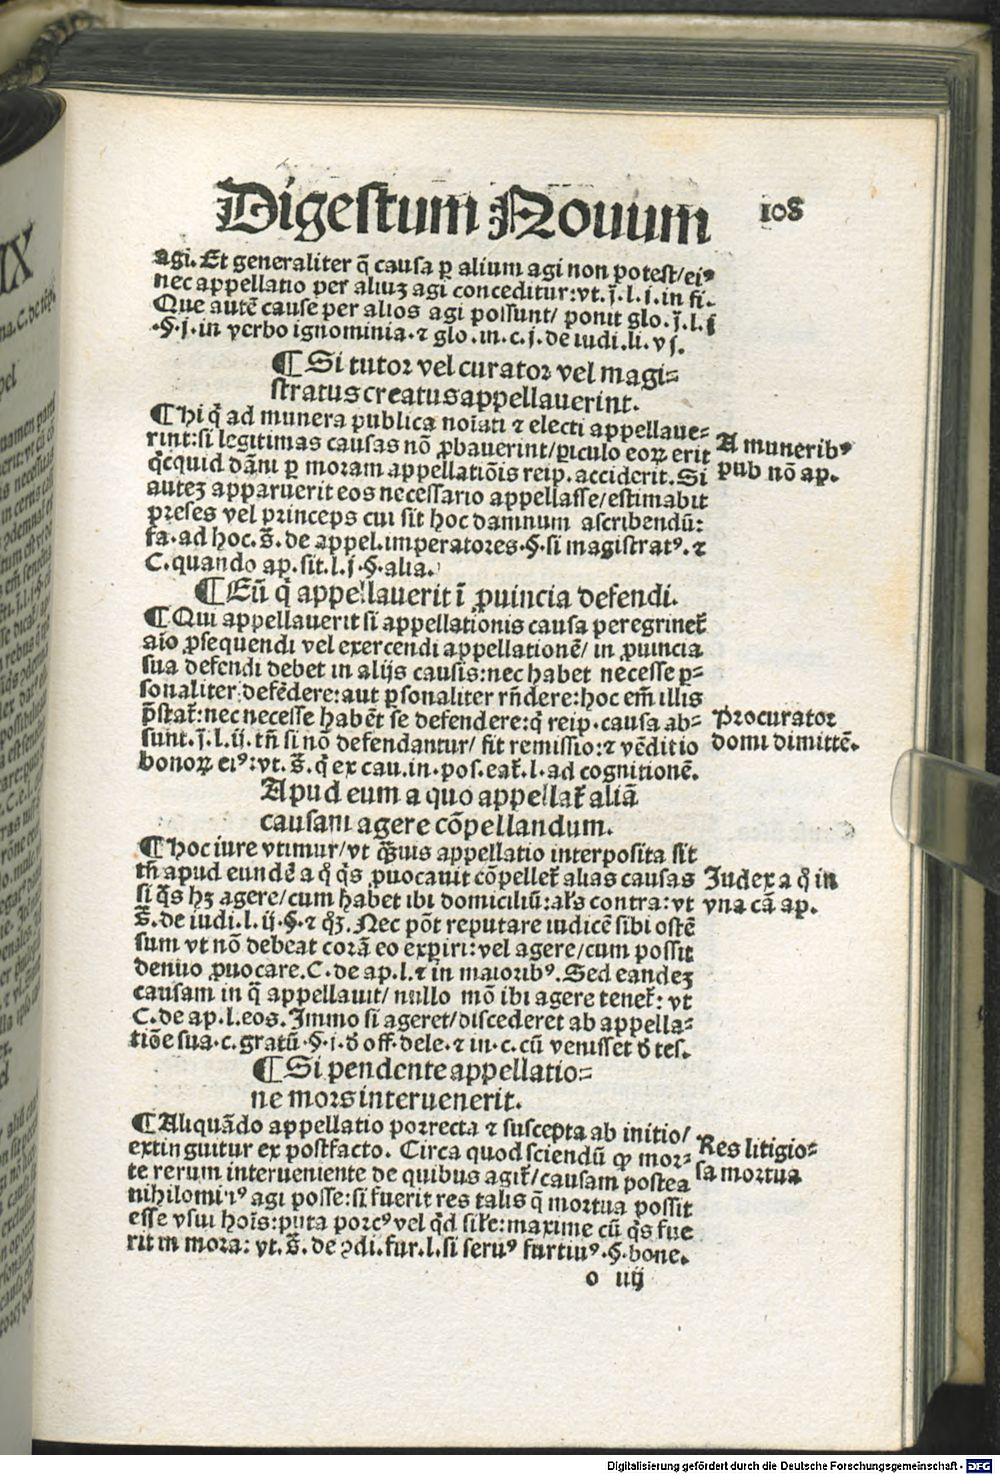 Digestum Nouum 108
agi. Et generaliter q̃ causa ꝑ alium agi non potest/eiꝰ
nec appellatio per aliuꝫ agi conceditur: vt. j̃. l. j. in fi.
Que autẽ cause per alios agi possunt/ ponit glo. j̃. l. j
.§. j. in verbo ignominia. ⁊ glo. in. c. j. de iudi. li. vj.
¶ Si tutor vel curator vel magi=
stratus creatus appellauerint.
¶ Hi q̃ ad munera publica noĩati ⁊ electi appellaue=
rint: si legitimas causas nõ ꝓbauerint/ periculo eoꝝ erit
qcquid dãni ꝑ moram appellatiõis reip. acciderit. Si
auteꝫ apparuerit eos necessario appellasse/ estimabit
preses vel princeps cui sit hoc damnum ascribendũ:
fa. ad hoc. s̃. de appel. imperatores. §. si magistratꝰ. ⁊
C. quando ap. sit. l. j. §. alia.
A muneribꝰ
pub nõ ap.
¶ Eũ q̃ appellauerit ĩ ꝓuincia defendi.
¶ Qui appellauerit si appellationis causa peregrinet̃
aĩo ꝓsequendi vel exercendi appellationẽ/ in ꝓuincia
sua defendi debet in alijs causis: nec habet necesse ꝑ=
sonaliter defẽdere: aut ꝑsonaliter rñdere: hoc em̃ illis
p̃stat̃: nec necesse habẽt se defendere: q̃ reip. causa ab=
sunt. j̃. l. ij. tñ si nõ defendantur/ fit remissio: ⁊ vẽditio
bonoꝝ eiꝰ: vt. s̃. q̃ ex cau. in. pos. eat̃. l. ad cognitionẽ.
Procurator
domi dimittẽ.
Apud eum a quo appellat̃ aliã
causam agere cõpellandum.
¶ Hoc iure vtimur/ vt q̃uis appellatio interposita sit
tñ apud eundẽ a q̊ q̃s ꝓuocauit cõpellet̃ alias causas
si q̃s hꝫ agere/ cum habet ibi domiciliũ: als̃ contra: vt
s̃. de iudi. l. ij. §. ⁊ q̃ꝫ. Nec põt reputare iudicẽ sibi ostẽ
sum vt nõ debeat corã eo experiri: vel agere/ cum possit
denuo ꝓuocare. C. de ap. l. ⁊ in maioribꝰ. Sed eandeꝫ
causam in q̃ appellauit/ nullo mõ ibi agere tenet̃: vt
C. de ap. l. eos. Immo si ageret/ discederet ab appella=
tiõe sua. c. gratũ. §. j. ð off. dele. ⁊ in. c. cũ venisset ð tes.
Judex a q̊ in
vna cã ap.
¶ Si pendente appellatio=
ne mors interuenerit.
¶ Aliquãdo appellatio porrecta ⁊ suscepta ab initio/
extinguitur ex postfacto. Circa quod sciendũ ꝙ mor=
te rerum interueniente de quibus agit̃/ causam postea
nihilominꝰ agi posse: si fuerit res talis q̃ mortua possit
esse vsui hoĩs: puta porcꝰ vel q̃d sil̃e: maxime cũ q̃s fue
rit in mora: vt. s̃. de ↄdi. fur. l. si seruꝰ furtiuꝰ. §. bone.
Res litigio=
sa mortua
o iiij
Digitalisierung gefördert durch die Deutsche Forschungsgemeinschaft - DFG